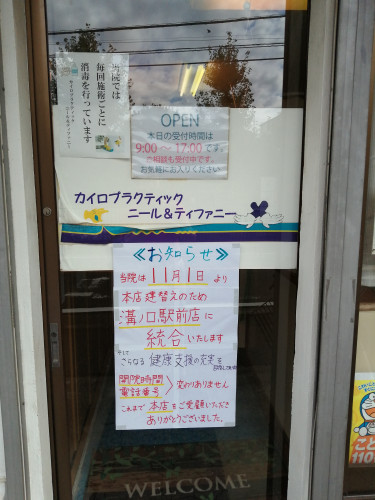 当院では
毎回施術ごとに
消毒を行っています
カイロプラクティック
ニール&ティファニー
OPEN
本日の受付時間は
9:00〜17:00です。
ご相談も受付中です。
お気軽にお入りください。
カイロプラクティック
ニール&ティファニー
≪お知らせ≫
当院は11月1日より
本店建替えのため
溝ノ口駅前店に
統合いたします
そして
さらなる健康支援の充実を
開院時間
電話番号
変わりありません
これまで本店をご愛顧いただき
ありがとうございました。
WELCOME
こど
110